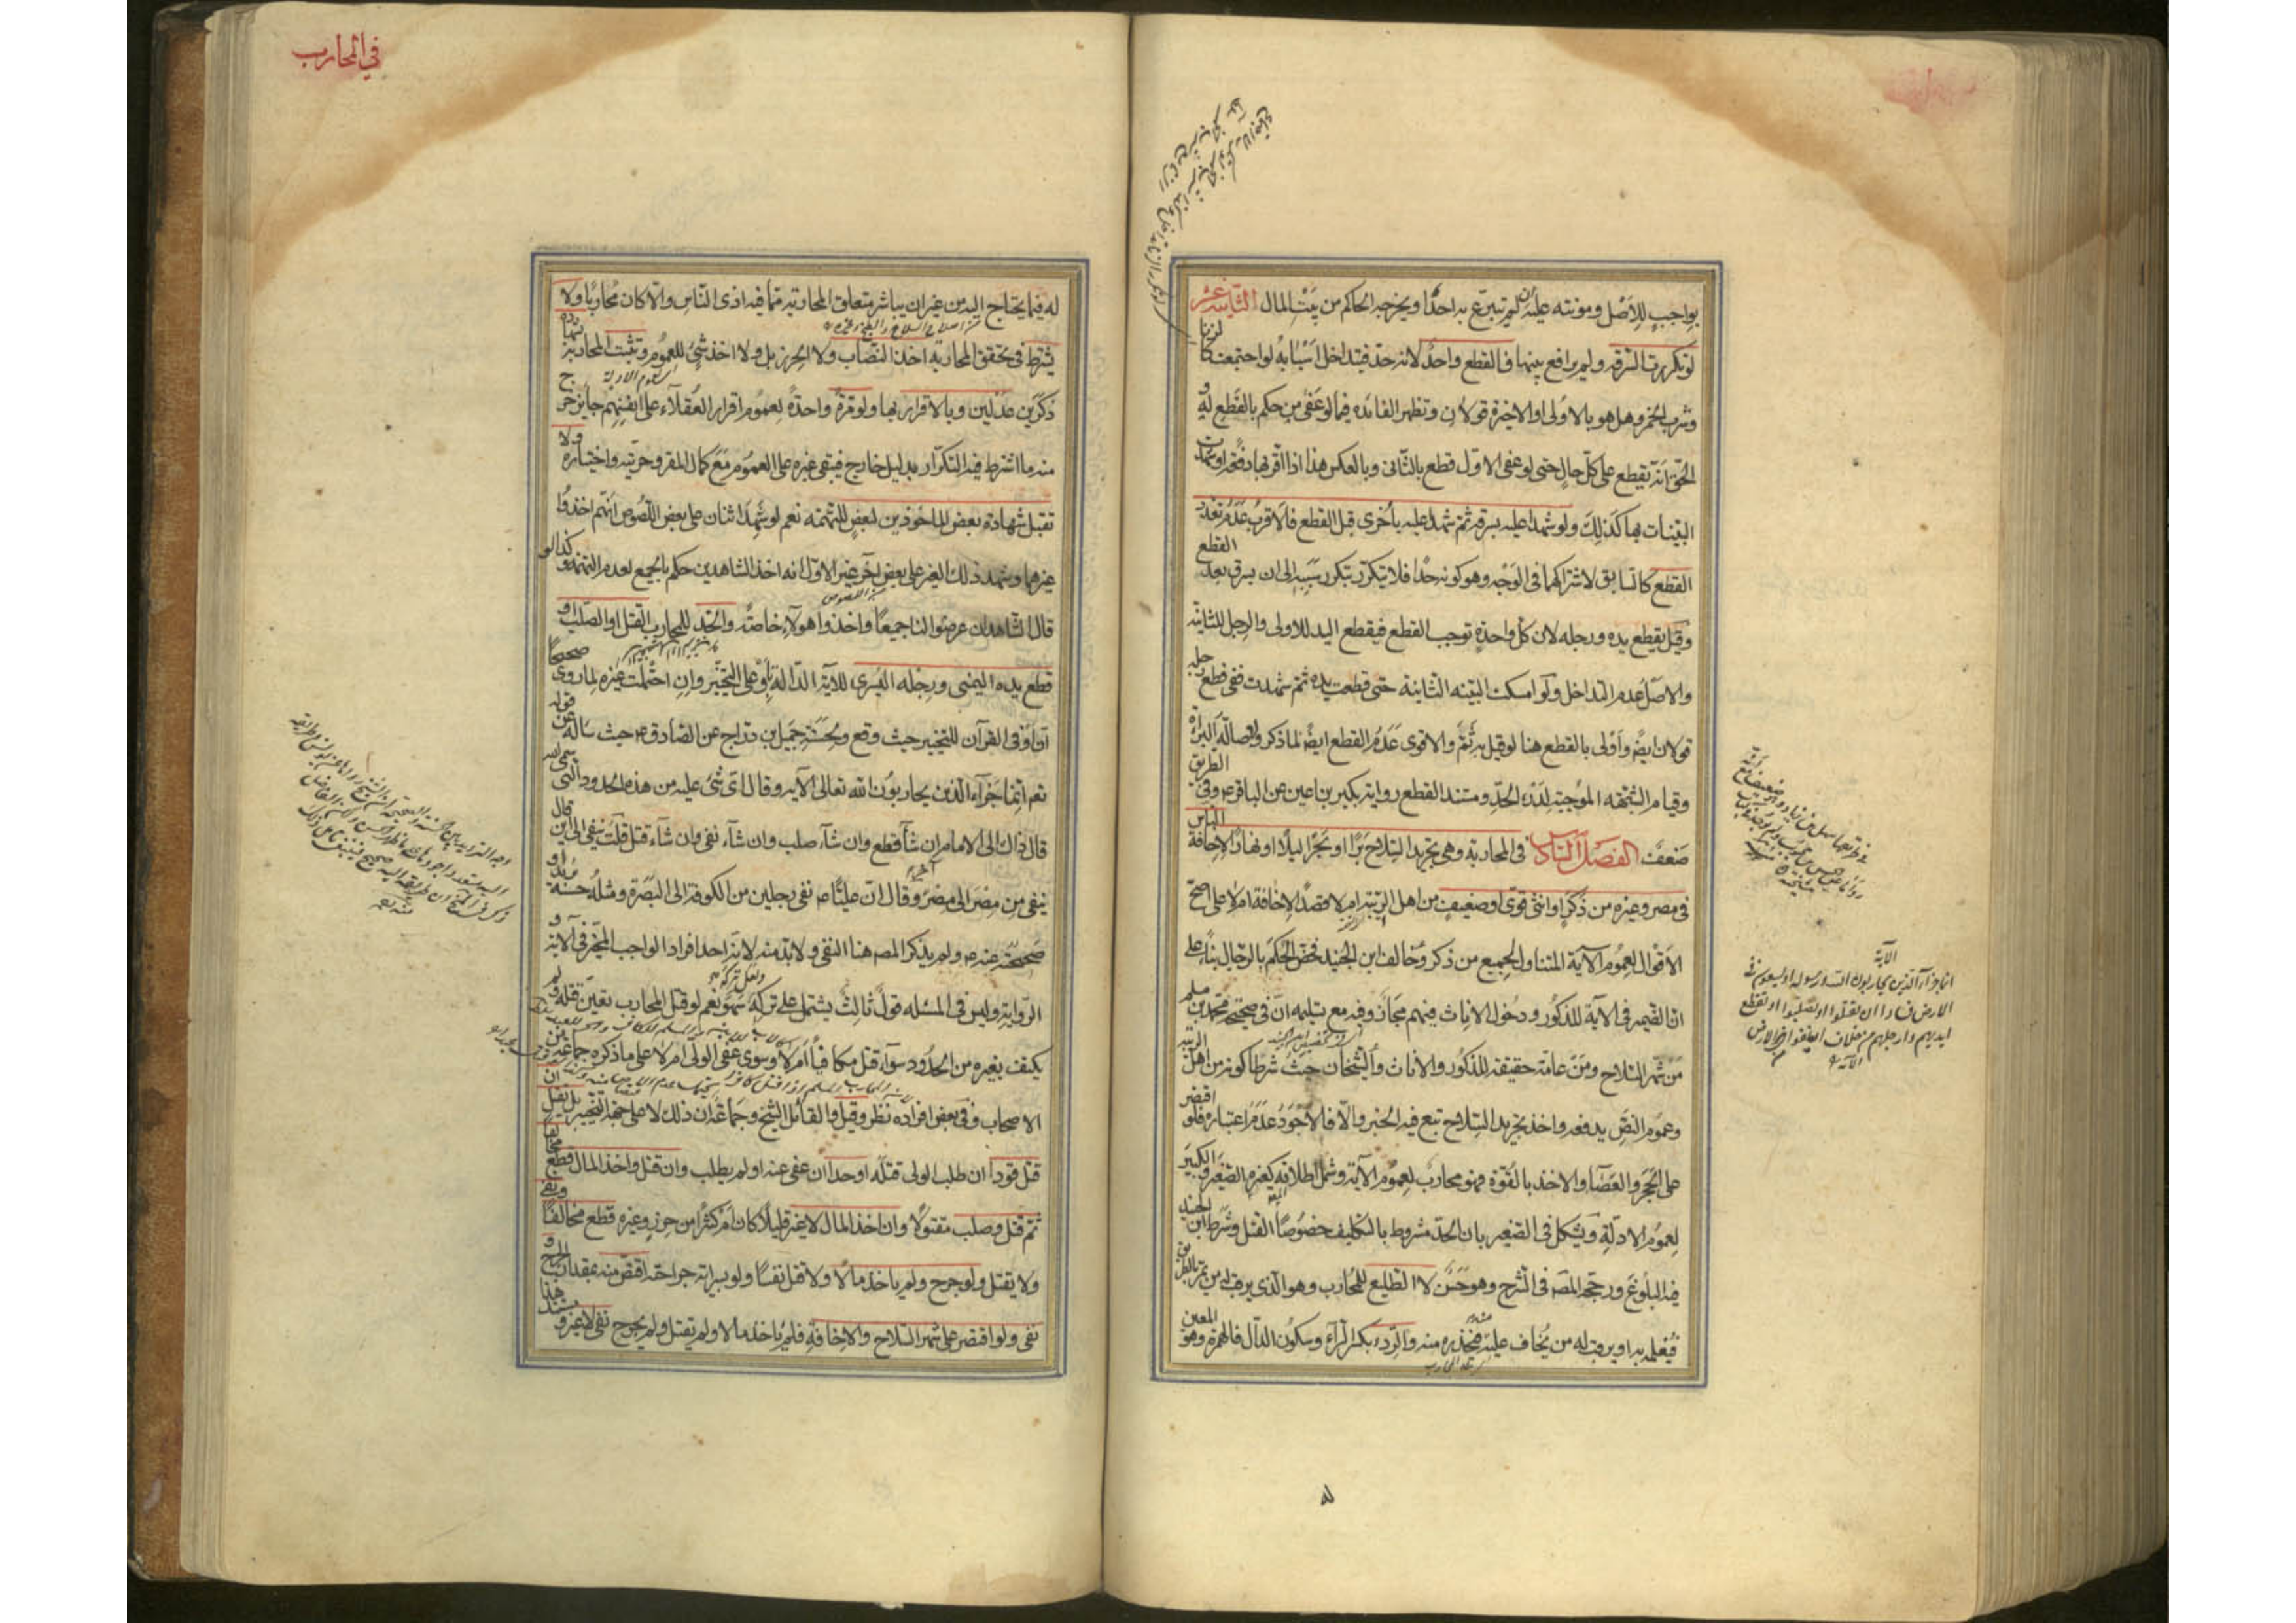 بواجب للأصل ومونته عليه إن لم يتبرع به احد ويخرجه الحاكم من بيت المال الثانية عشر
لو تكررت السرقة ولم يرافع بينها فالقطع واحد لانه حد فيتداخل اسبابه لو اجتمعت كالزنا
وشرب الخمر وهل هو بالاولى او الاخيرة قولان وتظهر الفائدة فيما لو عفى من حكم بالقطع له و
الحق انه يقطع على كل حال حتى لو عفى الاول قطع بالثاني وبالعكس هذا اذا اقر بها دفعة او شهدت
البينات بها كذلك ولو شهدا عليه بسرقة ثم شهدا عليه باخرى قبل القطع فالاقرب عدم تعدد
القطع كالسابق لاشتراكهما في الوجه وهو كونه حدا فلا يتكرر بتكرر سببه الى ان يسرق بعد القطع
وقيل يقطع يده ورجله لان كل واحدة توجب القطع فيقطع اليد للاولى والرجل للثانية
والاصل عدم التداخل ولو امسكت البينة الثانية حتى قطعت يده ثم شهدت ففي قطع رجله
قولان ايضا واولى بالقطع هنا لو قيل به ثم والاقوى عدم القطع ايضا لما ذكر واصالة البراءة
وقيام الشبهة الموجبة لدرء الحد ومستند القطع رواية بكير بن اعين عن الباقر ع وفي الطريق
ضعف الفصل السادس في المحاربة وهي تجريد السلاح برا او بحرا ليلا او نهارا لاخافة الناس
في مصر وغيره من ذكر او انثى قوي او ضعيف من اهل الريبة ام لا قصد الاخافة ام لا على اصح
الاقوال لعموم الآية المتناول لجميع من ذكر وخالف ابن الجنيد فخص الحكم بالرجال بناء على
ان الضمير في الآية للذكور ودخول الاناث فيهم مجاز وفيه مع تسليمه ان في صحيحة محمد بن مسلم
من شهر السلاح ومن عامة حقيقة للذكور والاناث والشيخان حيث شرطا كونه من اهل الريبة
وعموم النص يدفعه واخذ تجريد السلاح تبع فيه الخبر والا فالاجود عدم اعتباره فلو اقتصر
على الحجر والعصا والاخذ بالقوة فهو محارب لعموم الآية وشمل اطلاقه كغيره الصغير والكبير
لعموم الادلة ويشكل في الصغير بان الحد مشروط بالتكليف خصوصا القتل وشرط ابن الجنيد
فيه البلوغ ورجحه المصه في الشرح وهو حسن لا الطليع للمحارب وهو الذي يرقب له من يمر بالطريق
فيعلمه به او يرقب له من يخاف عليه منه فيحذره منه والردء بكسر الراء وسكون الدال فالهمزة وهو المعين
الآية
انما جزاء الذين يحاربون الله ورسوله او يسعون في
الارض فسادا ان يقتلوا او يصلبوا او تقطع
ايديهم وارجلهم من خلاف او ينفوا من الارض
الآية
في المحارب
له فيما يحتاج اليه من غير ان يباشر متعلق المحاربة مما فيه اذى الناس والا كان محاربا ولا
يشترط في تحقق المحاربة اخذ النصاب ولا الحرز بل ولا اخذ شيء للعموم وتثبت المحاربة بشهادة
ذكرين عدلين وبالاقرار بها ولو مرة واحدة لعموم اقرار العقلاء على انفسهم جايز خرج
منه ما اشترط فيه التكرار بدليل خارج فيبقى غيره على العموم مع كمال المقر وحريته واختياره ولا
تقبل شهادة بعض الماخوذين لبعض للتهمة نعم لو شهد اثنان على بعض اللصوص انهم اخذوا
غيرهما وشهد ذلك الغير على بعض آخر غير الاول انه اخذ الشاهدين حكم بالجميع لعدم التهمة وكذا لو
قال الشاهدان عرضوا لنا جميعا واخذوا هولاء خاصة والحد للمحارب القتل او الصلب او
قطع يده اليمنى ورجله اليسرى للآية الدالة باو على التخيير وان احتملت غيره لما روى صحيحا
ان او في القرآن للتخيير حيث وقع ولحسنة جميل بن دراج عن الصادق ع حيث ساله عن قوله
تعم انما جزاء الذين يحاربون الله تعالى الآية وقال اى شيء عليه من هذه الحدود التي سمى الله
قال ذاك الى الامام ان شاء قطع وان شاء صلب وان شاء نفى وان شاء قتل قلت ينفى الى اين قال
ينفى من مصر الى مصر آخر وقال ان عليا ع نفى رجلين من الكوفة الى البصرة ومثله حسنة بريد او
صحيحته عنه ع ولم يذكر المصه هنا النفي ولا بد منه لانه احد افراد الواجب المخير في الآية و
الرواية وليس في المسئلة قول ثالث يشتمل على تركه سهو نعم لو قتل المحارب تعين قتله ولم
يكتف بغيره من الحدود سواء قتل مكافيا ام لا وسوى عفى الولى ام لا على ما ذكره جماعة من
الاصحاب وفي بعض افراده نظر وقيل والقائل الشيخ وجماعة ان ذلك لا على جهة التخيير بل يقتل ان
قتل قودا ان طلب الولى قتله او حدا ان عفى عنه او لم يطلب وان قتل واخذ المال قطع مخالفا
ثم قتل وصلب مقتولا وان اخذ المال لا غير قليلا كان ام كثيرا من حرز وغيره قطع مخالفا ونفى
ولا يقتل ولو جرح ولم ياخذ مالا ولا قتل نفسا ولو بسراية جراحته اقتص منه بمقدار الجرح و
نفى ولو اقتصر على شهر السلاح والاخافة فلم ياخذ مالا ولم يقتل ولم يجرح نفى لا غير ومستند هذا